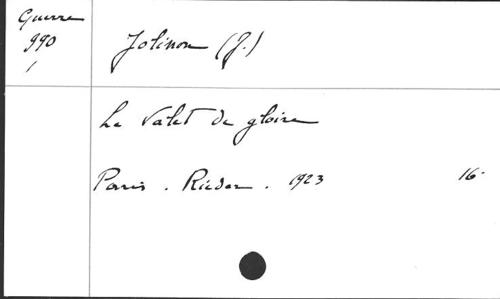 Guerre
990
1
Jolinon (J.)
Le Valet de gloire
Paris . Rieder . 1923 16°